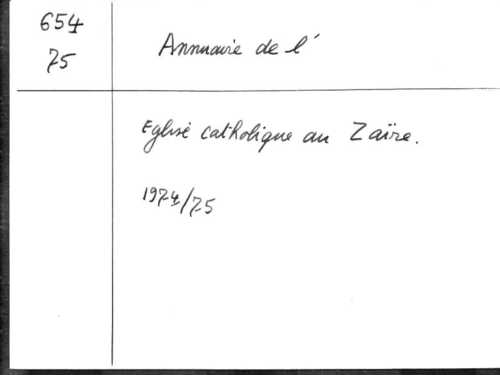 654
75
Annuaire de l'
Eglise catholique au Zaïre.
1974/75